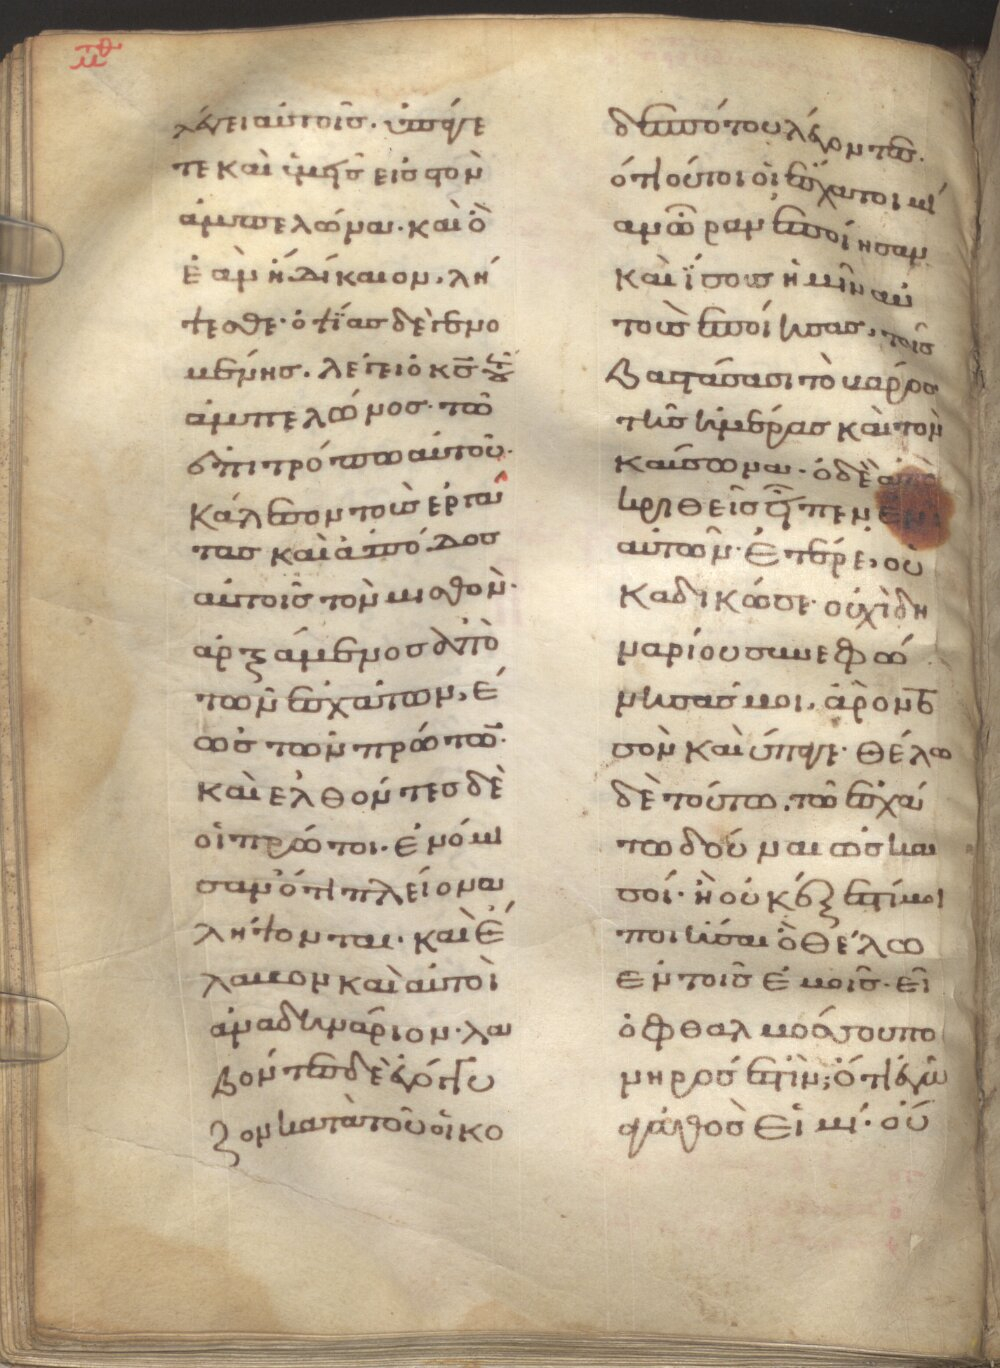 μθ
λέγει αὐτοῖς· ὑπάγε
τε καὶ ὑμεῖς εἰς τὸν
ἀμπελῶνα· καὶ ὃ
ἐὰν ἦ δίκαιον, λή
ψεσθε· ὀψίας δὲ γενο
μένης, λέγει ὁ κ̅ς̅ τοῦ
ἀμπελῶνος τῶ
ἐπιτρόπω αὐτοῦ·
κάλεσον τοὺς ἐργά
τας καὶ ἀπόδος
αὐτοῖς τὸν μισθὸν·
ἀρξάμενος ἀπὸ
τῶν ἐσχάτων, ἕ
ως τῶν πρώτων·
καὶ ἐλθόντες δὲ
οἱ πρῶτοι· ἐνόμι
σαν ὅτι πλείονα
λήψονται· καὶ ἔ
λαβον καὶ αὐτοὶ
ἀνὰ δηνάριον· λα
βόντες δὲ ἐγόγγυ
ζον κατὰ τοῦ οἰκο
δεσπότου λέγοντες·
ὅτι οὗτοι οἱ ἔσχατοι μί
αν ὥραν ἐποίησαν
καὶ ἴσους ἡμῖν αὐ
τοὺς ἐποίησας, τοῖς
βαστάσασι τὸ βάρος
τῆς ἡμέρας καὶ τὸν
καύσωνα· ὁ δὲ ἀπο
κριθεὶς εἶπεν ἑνὶ
αὐτῶν· ἑταῖρε, οὐ
κ ἀδικῶ σε· οὐχὶ δη
ναρίου συνεφώ
νησάς μοι, ἆρον τὸ
σὸν καὶ ὕπαγε· θέλω
δὲ τούτω, τῶ ἐσχά
τω δοῦναι ὡς καὶ
σοί· ἢ οὐκ ἔξεστί μοι
ποιῆσαι ὃ θέλω
ἐν τοῖς ἐμοῖς· εἰ
ὁ ὀφθαλμός σου πο
νηρός ἐστιν; ὅτι ἐγὼ
ἀγαθὸς εἰμί· οὕ